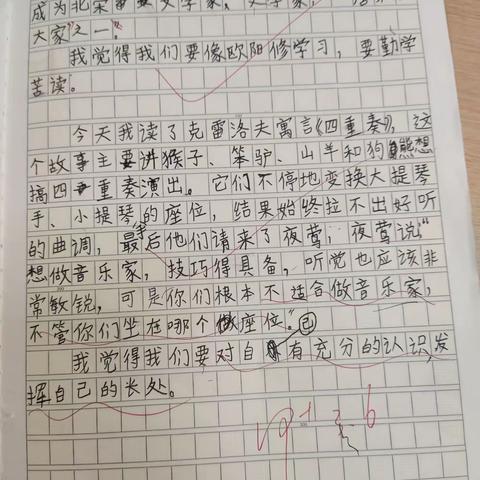 成为北宋
大家"之一"。
我觉得我们要像欧阳修学习，要勤学
苦读。
今天我读了克雷洛夫寓言《四重奏》，这
个故事主要讲猴子、笨驴、山羊和狗熊想
搞四重奏演出。它们不停地变换大提琴
手、小提琴手的座位，结果始终拉不出好听
的曲调，最后他们请来了夜莺，夜莺说"
想做音乐家，技巧得具备，听觉也应该非
常敏锐，可是你们根本不适合做音乐家，
不管你们坐在哪个座位。"
我觉得我们要对自己有充分的认识，发
挥自己的长处。